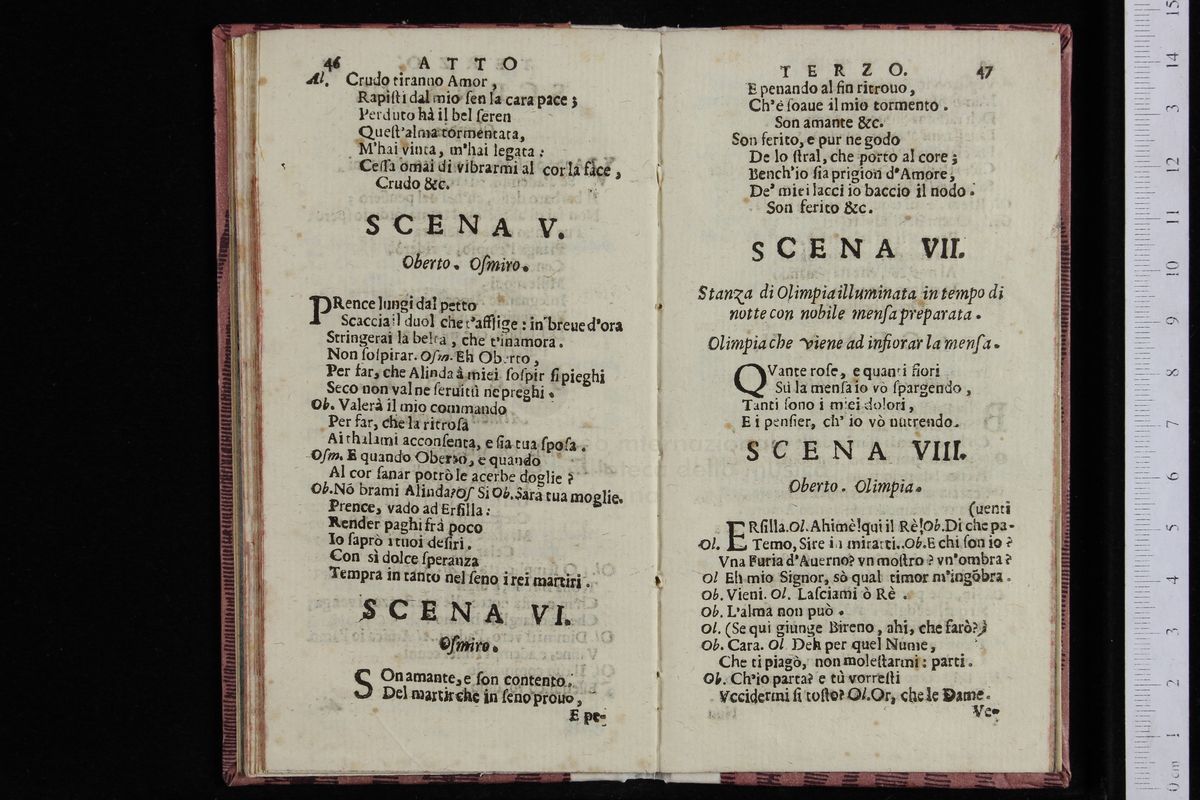 46 ATTO
Al. Crudo tiranno Amor,
Rapiſti dal mio ſen la cara pace;
Perduto hà il bel ſeren
Queſt'alma tormentata,
M'hai vinta, m'hai legata:
Ceſſa omai di vibrarmi al cor la face,
Crudo &c.
SCENA V.
Oberto. Oſmiro.
PRence lungi dal petto
Scaccia il duol che t'affligge: in breue d'ora
Stringerai la beltà, che t'inamora.
Non ſoſpirar. Oſm. Eh Oberto,
Per far, che Alinda à miei ſoſpir ſi pieghi
Seco non val ne ſeruitù ne preghi.
Ob. Valerà il mio commando
Per far, che la ritroſa
Ai thalami acconſenta, e ſia tua ſpoſa.
Oſm. E quando Oberto, e quando
Al cor ſanar potrò le acerbe doglie?
Ob. Nō brami Alinda? Oſ Si Ob. Sara tua moglie.
Prence, vado ad Erſilla:
Render paghi frà poco
Io ſaprò i tuoi deſiri.
Con sì dolce ſperanza
Tempra in tanto nel ſeno i rei martiri.
SCENA VI.
Oſmiro.
SOn amante, e ſon contento.
Del martir che in ſeno prouo,
E pe-
TERZO. 47
E penando al fin ritrouo,
Ch'é ſoaue il mio tormento.
Son amante &c.
Son ferito, e pur ne godo
De lo ſtral, che porto al core;
Bench'io ſia prigion d'Amore,
De' miei lacci io baccio il nodo.
Son ferito &c.
SCENA VII.
Stanza di Olimpia illuminata in tempo di
notte con nobile menſa preparata.
Olimpia che viene ad infiorar la menſa.
QVante roſe, e quanti fiori
Sù la menſa io vò ſpargendo,
Tanti ſono i miei dolori,
E i penſier, ch' io vò nutrendo.
SCENA VIII.
Oberto. Olimpia.
(uenti
ERſilla. Ol. Ahimè! qui il Rè! Ob. Di che pa-
Ol. Temo, Sire in mirarti.. Ob. E chi ſon io?
Vna Furia d'Auerno? vn moſtro? vn'ombra?
Ol Eh mio Signor, sò qual timor m'ingōbra.
Ob. Vieni. Ol. Laſciami ò Rè.
Ob. L'alma non può.
Ol. (Se qui giunge Bireno, ahi, che farò?)
Ob. Cara. Ol. Deh per quel Nume,
Che ti piagò, non moleſtarmi: parti.
Ob. Ch'io parta? e tù vorreſti
Vccidermi ſi toſto? Ol. Or, che le Dame.
Ve-